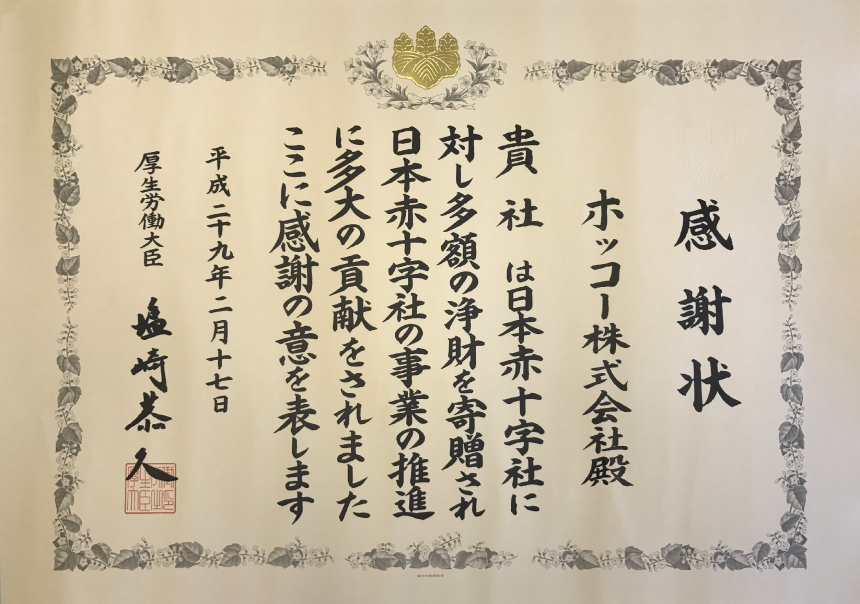 感謝状
ホッコー株式会社殿
貴社は日本赤十字社に
対し多額の浄財を寄贈され
日本赤十字社の事業の推進
に多大の貢献をされました
ここに感謝の意を表します
平成二十九年二月十七日
厚生労働大臣
塩崎恭久